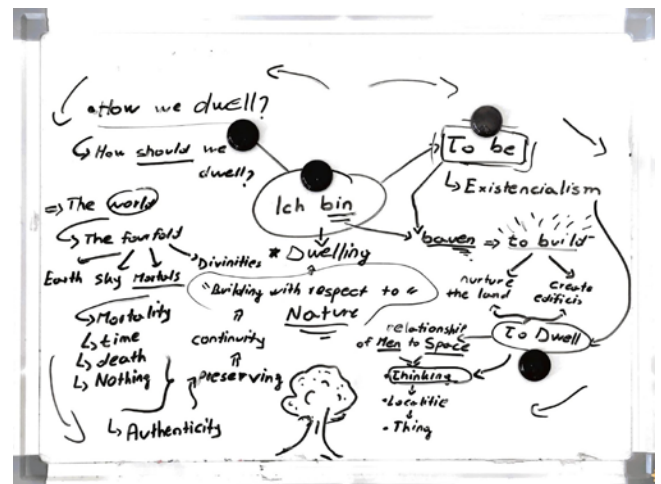 • How we dwell?
↳ How should we
dwell?
⇒ The world
↳ The fourfold
Earth sky Mortals Divinities
↳ Mortality
↳ time
↳ death
↳ Nothing
↳ Authenticity
Ich bin
* Dwelling
"Building with respect to "
Nature
continuity
preserving
To be
↳ Existencialism
bauen ⇒ to build
nurture
the land
create
edificis
To Dwell
relationship
of Men to Space
Thinking
• Localitie
• Thing